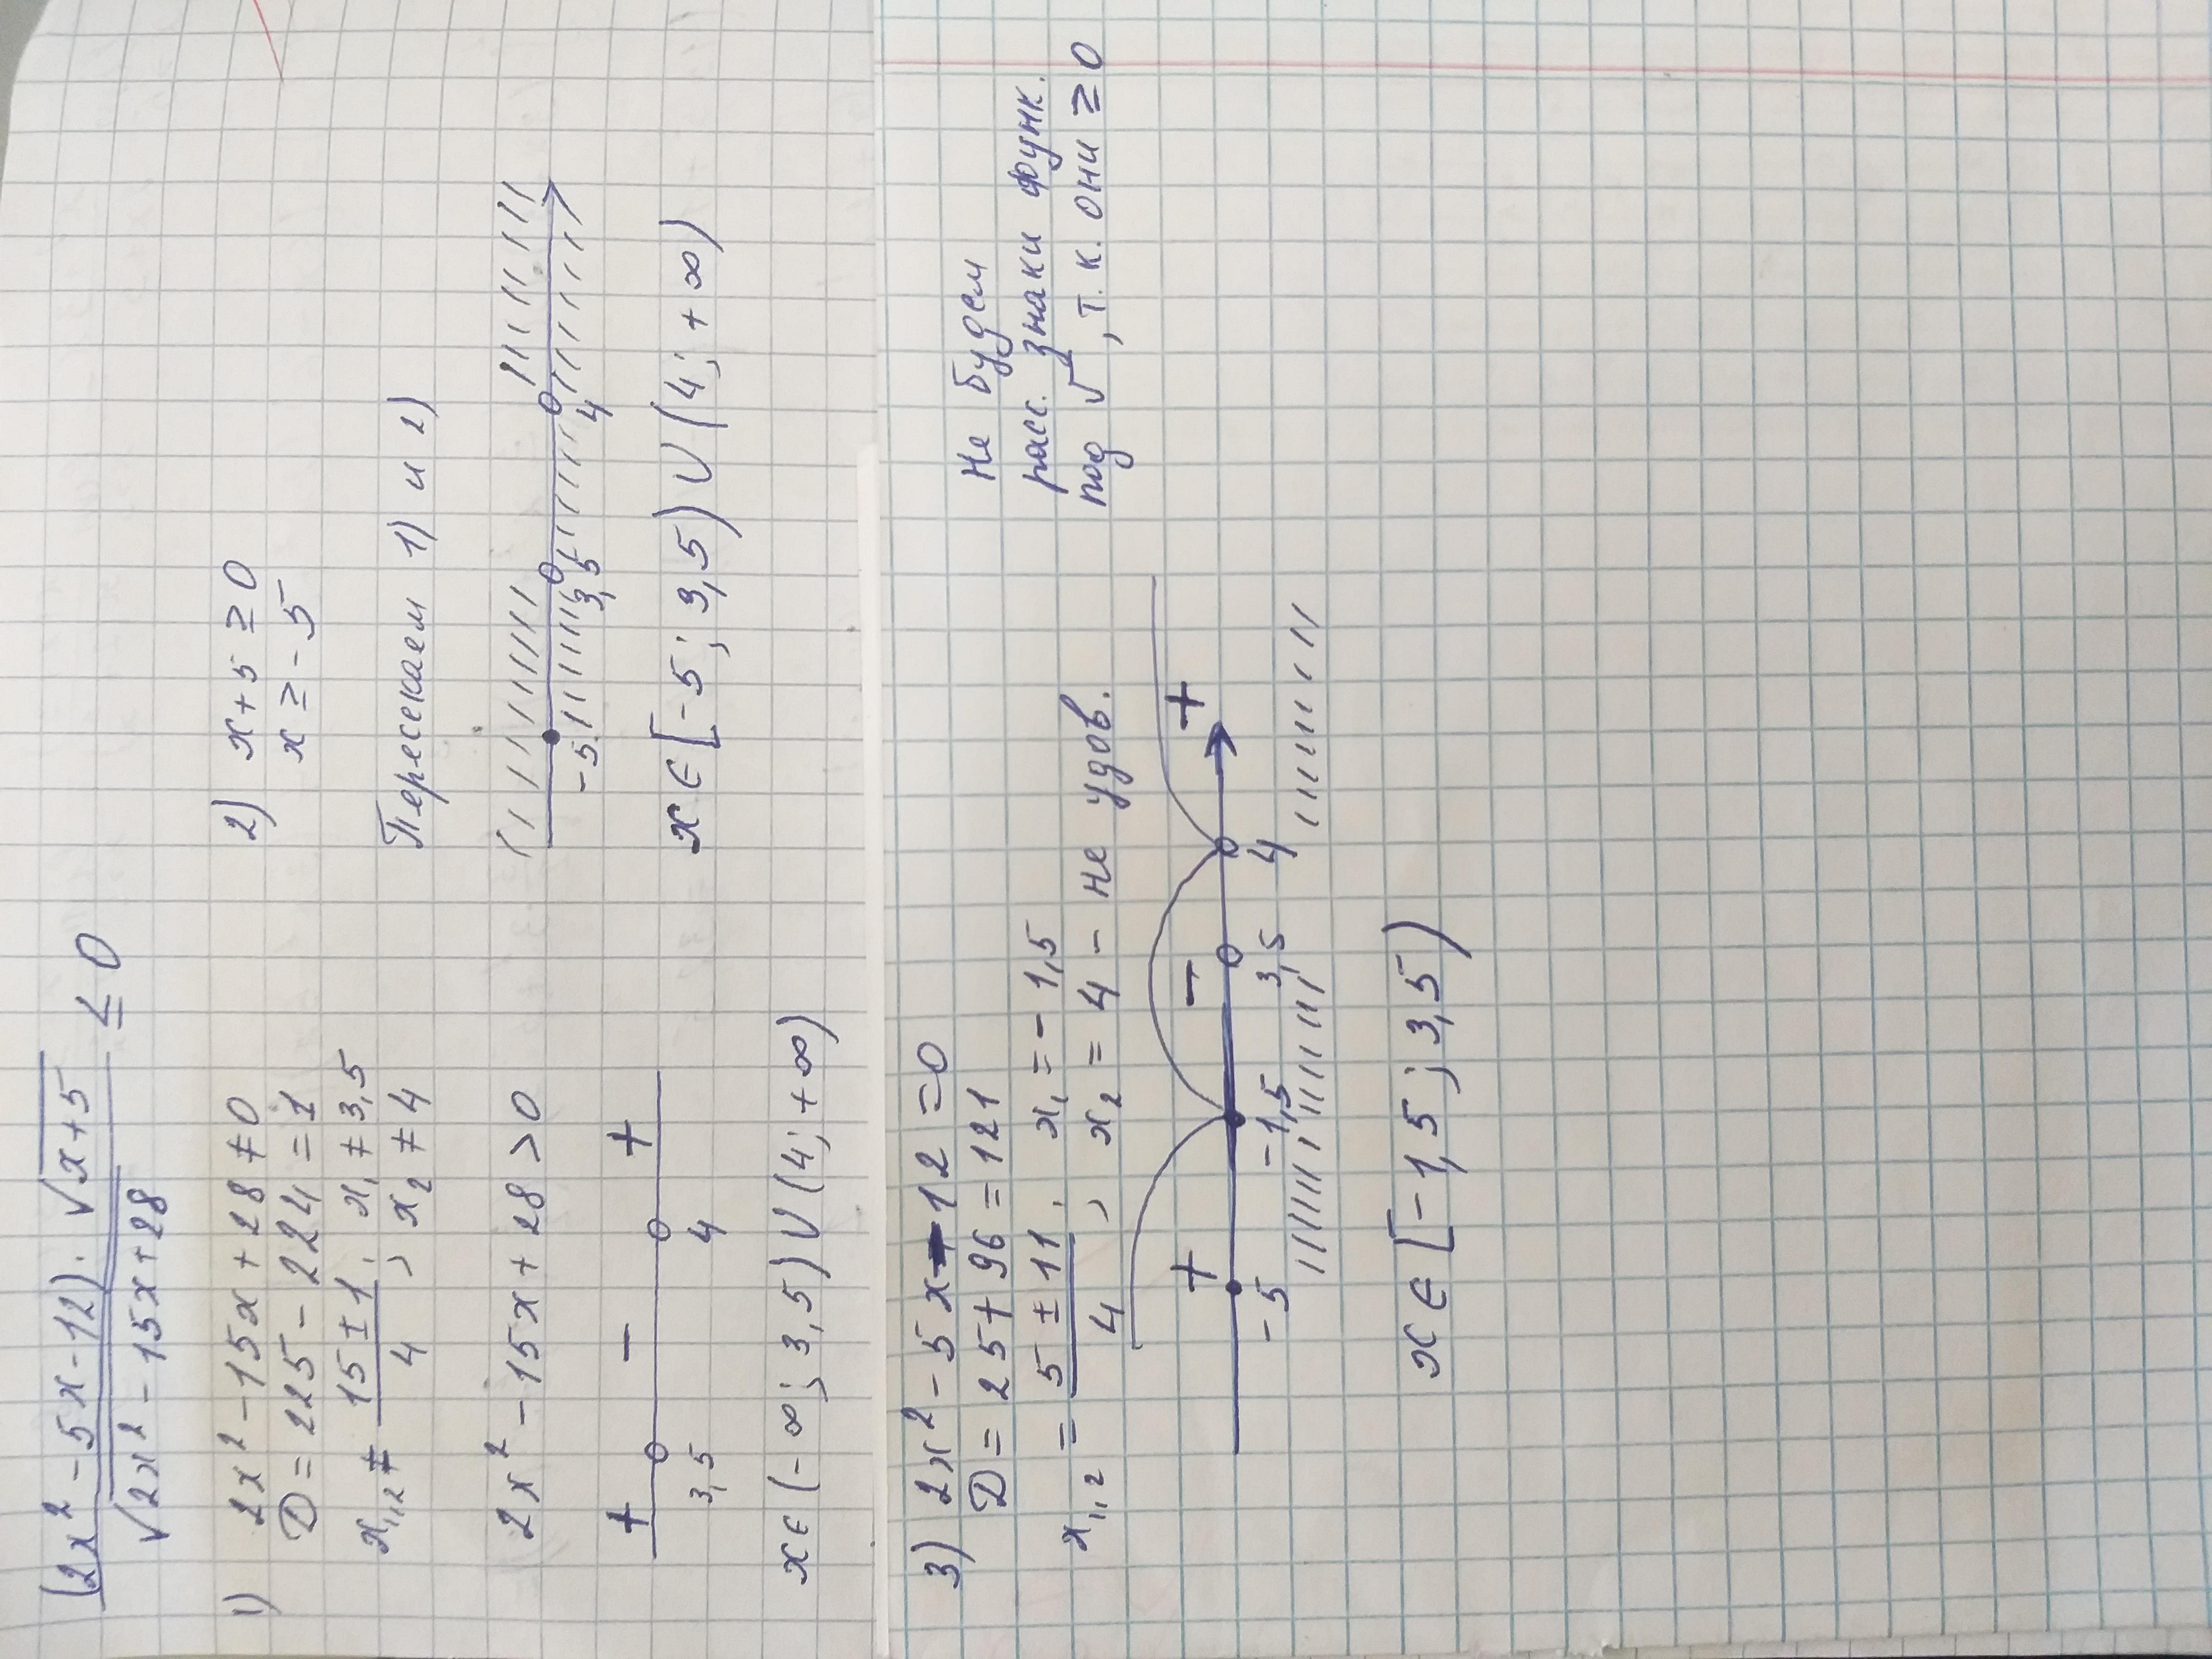 (2x² - 5x - 12) · √x+5
√2x² - 15x + 28
≤ 0
1) 2x² - 15x + 28 ≠ 0
D = 225 - 224 = 1
x₁,₂ ≠ 15 ± 1 ; x₁ ≠ 3,5
4 ; x₂ ≠ 4
2x² - 15x + 28 > 0
+ - +
3,5 4
x ∈ (-∞; 3,5) ∪ (4; +∞)
2) x + 5 ≥ 0
x ≥ -5
Пересекаем 1) и 2)
-5 3,5 4
x ∈ [-5; 3,5) ∪ (4; +∞)
3) 2x² - 5x - 12 = 0
D = 25 + 96 = 121
x₁,₂ = 5 ± 11 ; x₁ = -1,5
4 ; x₂ = 4 - не удов.
+ - +
-5 -1,5 3,5 4
x ∈ [-1,5; 3,5)
Не будем
расс. знаки функ.
под √ , т.к. они ≥ 0